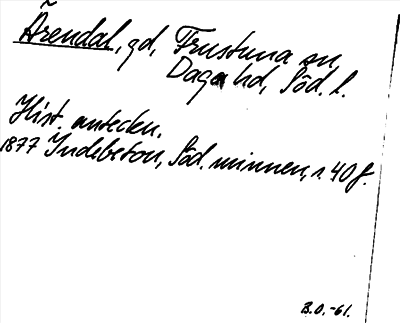 Ärendal, gd, Frustuna sn,
Daga hd, Söd. l.
Hist. anteckn.
1877 Indebetou, Söd. minnen, s. 40 f.
B.O. -61.